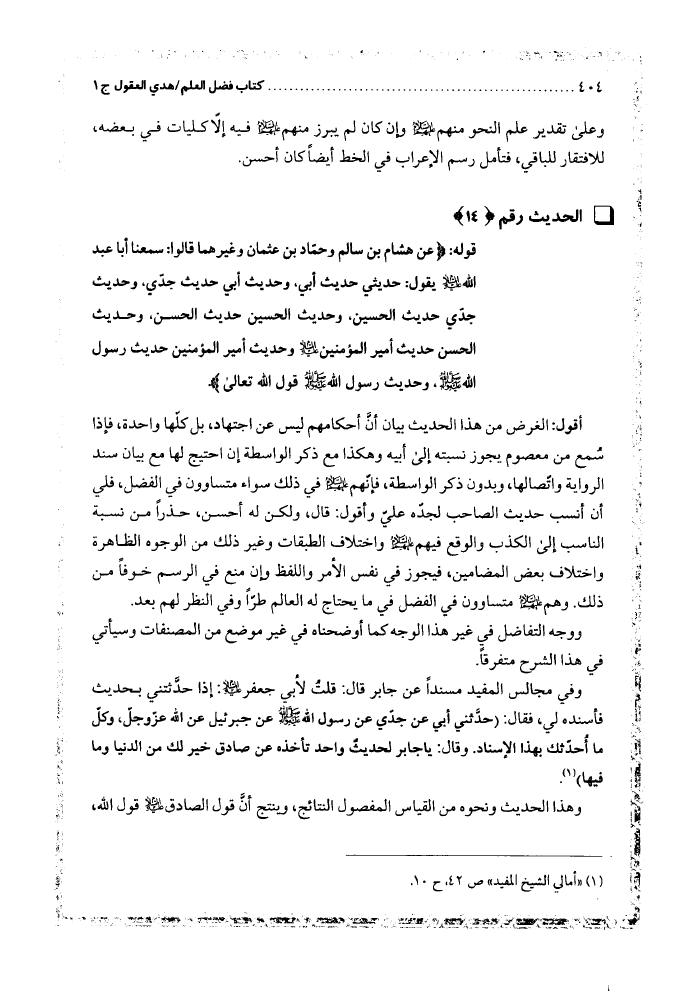 ٤٠٤ ........................................................ كتاب فضل العلم/هدي العقول ج١
وعلىٰ تقدير علم النحو منهم عليهم السلام وإن كان لم يبرز منهم عليهم السلام فيه إلّا كليات في بعضه،
للافتقار للباقي، فتأمل رسم الإعراب في الخط أيضاً كان أحسن.
❏ الحديث رقم ﴿ ١٤﴾
قوله: ﴿ عن هشام بن سالم وحمّاد بن عثمان وغيرهما قالوا: سمعنا أبا عبد
الله عليه السلام يقول: حديثي حديث أبي، وحديث أبي حديث جدّي، وحديث
جدّي حديث الحسين، وحديث الحسين حديث الحسن، وحديث
الحسن حديث أمير المؤمنين عليه السلام وحديث أمير المؤمنين حديث رسول
الله ﷺ، وحديث رسول الله ﷺ قول الله تعالىٰ ﴾.
أقول: الغرض من هذا الحديث بيان أنَّ أحكامهم ليس عن اجتهاد، بل كلّها واحدة، فإذا
سُمع من معصوم يجوز نسبته إلىٰ أبيه وهكذا مع ذكر الواسطة إن احتيج لها مع بيان سند
الرواية واتّصالها، وبدون ذكر الواسطة، فإنّهم عليهم السلام في ذلك سواء متساوون في الفضل، فلي
أن أنسب حديث الصاحب لجدّه عليّ وأقول: قال، ولكن له أحسن، حذراً من نسبة
الناسب إلىٰ الكذب والوقع فيهم عليهم السلام واختلاف الطبقات وغير ذلك من الوجوه الظاهرة
واختلاف بعض المضامين، فيجوز في نفس الأمر واللفظ وإن منع في الرسم خوفاً من
ذلك. وهم عليهم السلام متساوون في الفضل في ما يحتاج له العالم طرّاً وفي النظر لهم بعد.
ووجه التفاضل في غير هذا الوجه كما أوضحناه في غير موضع من المصنفات وسيأتي
في هذا الشرح متفرقاً.
وفي مجالس المفيد مسنداً عن جابر قال: قلتُ لأبي جعفر عليه السلام: إذا حدَّثتني بحديث
فأسنده لي، فقال: (حدَّثني أبي عن جدّي عن رسول الله ﷺ عن جبرئيل عن الله عزّوجلّ، وكلّ
ما أُحدّثك بهذا الإسناد. وقال: ياجابر لحديثٌ واحد تأخذه عن صادق خير لك من الدنيا وما
فيها)(١).
وهذا الحديث ونحوه من القياس المفصول النتائج، وينتج أنَّ قول الصادق عليه السلام قول الله،
(١) «أمالي الشيخ المفيد» ص ٤٢، ح ١٠.